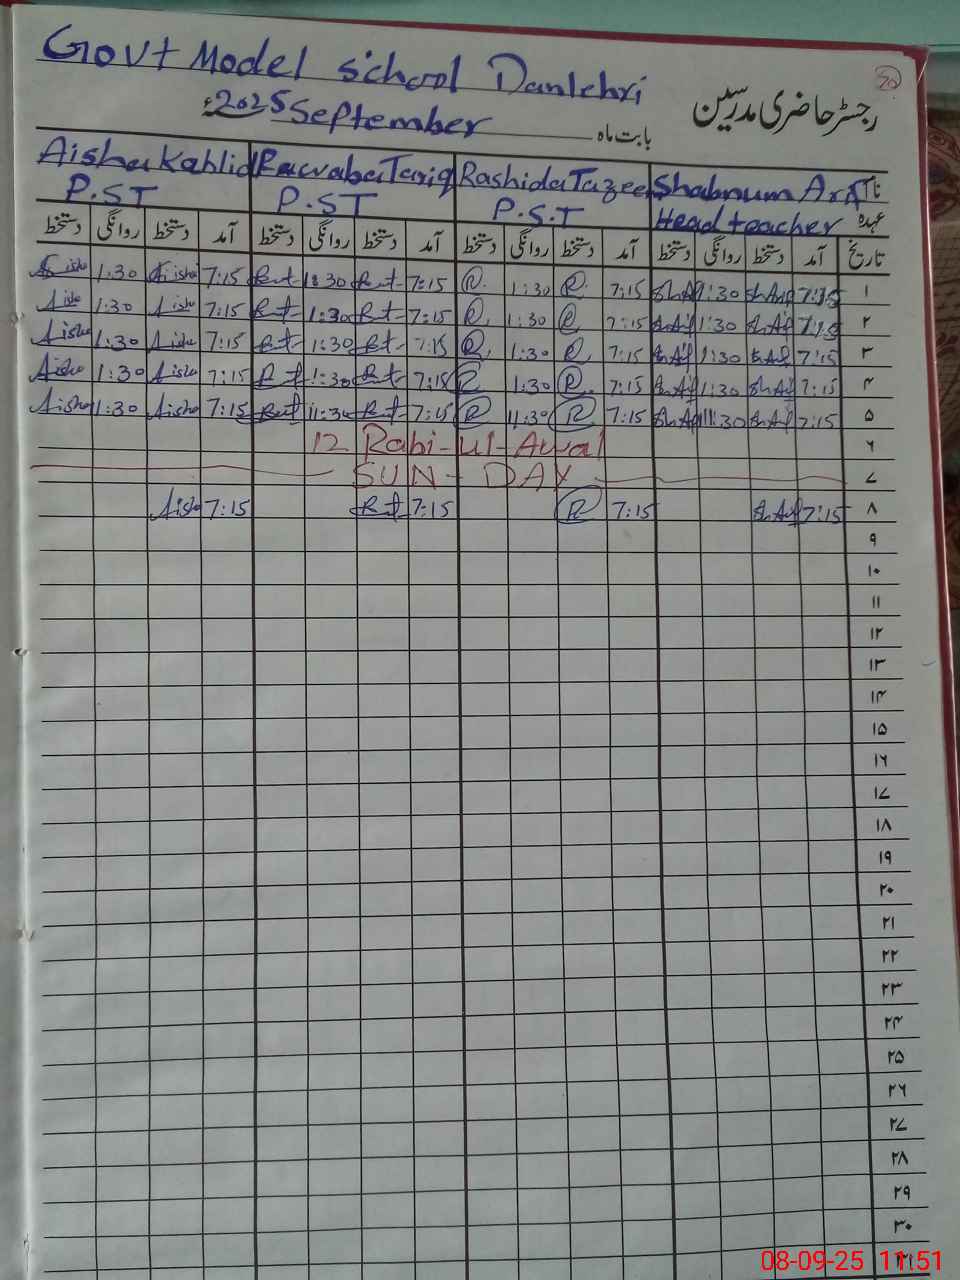 Govt Model school Danlehri
50
رجسٹر حاضری مدرسین
بابت ماہ September 2025ء
Aisha Kahlid Rawaba Tariq Rashida Tazeen Shabnum Ara نام
P.ST P.ST P.S.T Head teacher عہدہ
دستخط روانگی دستخط آمد دستخط روانگی دستخط آمد دستخط روانگی دستخط آمد دستخط روانگی دستخط آمد تاریخ
Aisha 1:30 Aisha 7:15 Rut 1:30 Rut 7:15 R 1:30 R 7:15 Sh.Arf 1:30 Sh.Arf 7:15 ۱
Aisha 1:30 Aisha 7:15 Rt 1:30 Rt 7:15 R 1:30 R 7:15 Sh.Arf 1:30 Sh.Arf 7:15 ۲
Aisha 1:30 Aisha 7:15 Rt 1:30 Rt 7:15 R 1:30 R 7:15 Sh.Arf 1:30 Sh.Arf 7:15 ۳
Aisha 1:30 Aisha 7:15 Rt 1:30 Rt 7:15 R 1:30 R 7:15 Sh.Arf 1:30 Sh.Arf 7:15 ۴
Aisha 1:30 Aisha 7:15 Rut 11:30 Rut 7:15 R 11:30 R 7:15 Sh.Arf 11:30 Sh.Arf 7:15 ۵
12 Rabi-ul-Awal ۶
SUN-DAY ۷
Aisha 7:15 Rut 7:15 R 7:15 Sh.Arf 7:15 ۸
۹
۱۰
۱۱
۱۲
۱۳
۱۴
۱۵
۱۶
۱۷
۱۸
۱۹
۲۰
۲۱
۲۲
۲۳
۲۴
۲۵
۲۶
۲۷
۲۸
۲۹
۳۰
۳۱
08-09-25 11:51